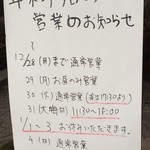 営業のお知らせ
12/28(月)まで通常営業
29(火)お昼のみ営業
30(水)通常営業
31(大晦日)11:30~18:00
1/1~3 お休みいただきます。
4(月)通常営業